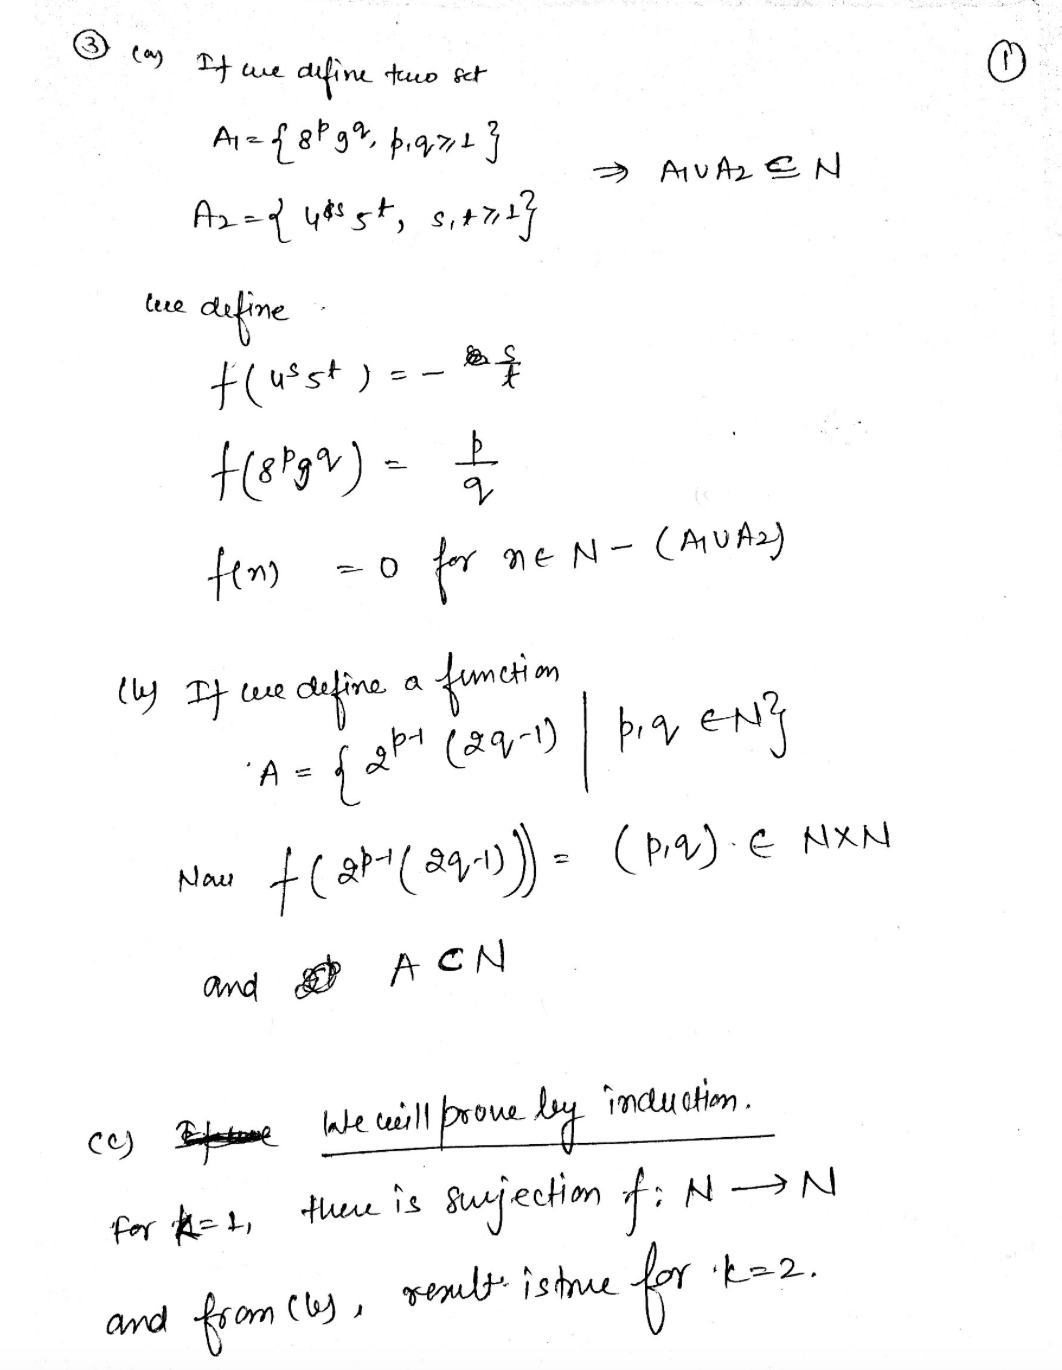 ③ (a) If we define two set
①
A₁ = { 8ᵖ 9^q, p,q ≥ 1 }
⇒ A₁ ∪ A₂ ⊆ N
A₂ = { 4ˢ 5ᵗ, s,t ≥ 1 }
we define
f(4ˢ 5ᵗ) = - s/t
f(8ᵖ 9^q) = p/q
f(n) = 0 for n ∈ N - (A₁ ∪ A₂)
(b) If we define a function
A = { 2^(p-1) (2q-1) | p,q ∈ N }
Now f(2^(p-1) (2q-1)) = (p,q) ∈ N×N
and A ⊂ N
(c) We will prove by induction.
for k=1, there is surjection f: N → N
and from (b), result is true for k=2.